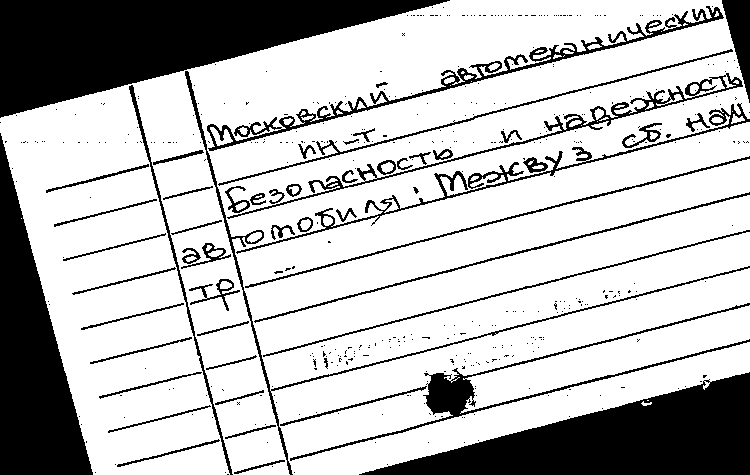 Московский автомеханический
ин-т.
Безопасность и надежность
автомобиля: Межвуз. сб. науч
тр ...